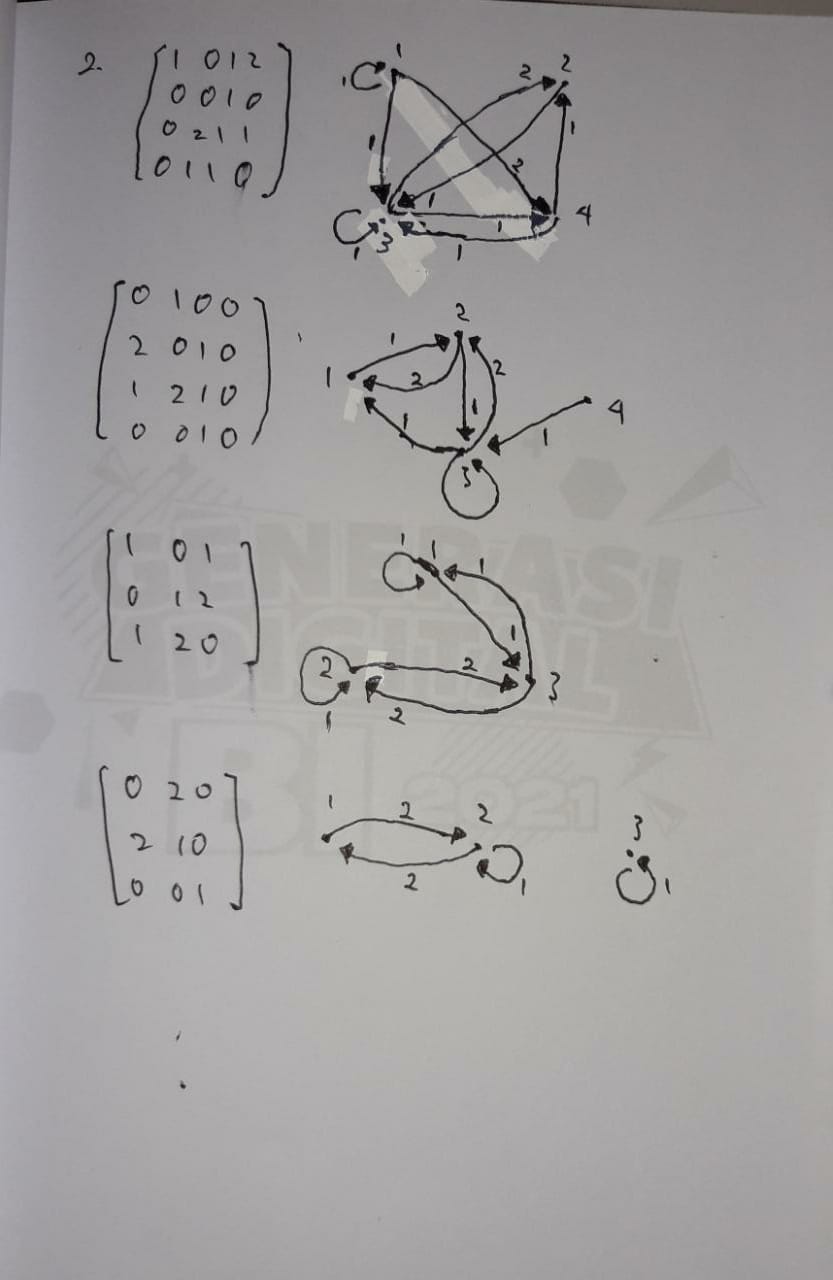 2. 1 0 1 2
0 0 1 0
0 2 1 1
0 1 1 0
1 2 2
1
1 2 1
1 1 4
3
1 1
0 1 0 0
2 0 1 0
1 2 1 0
0 0 1 0
2
1
1 2 2
1 4
1 1
3
1 0 1
0 1 2
1 2 0
1 1 1
1
2 2
3
1 2
0 2 0
2 1 0
0 0 1
1 2 2 3
2 1 1
GENERASI
DIGITAL
BI 2021